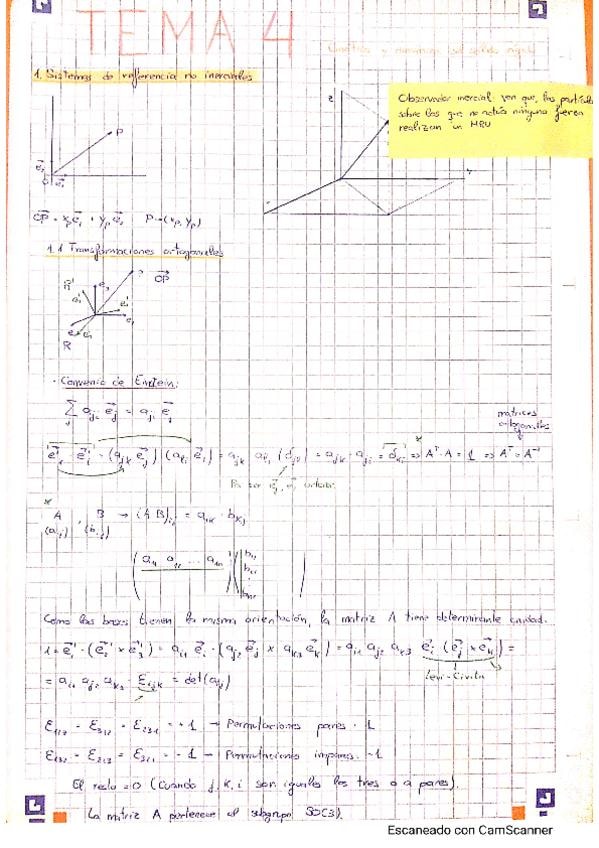 TEMA 4
Cinética y dinámica del sólido rígido
1. Sistemas de referencia no inerciales
Observador inercial ven que, las partículas
sobre las que no actúa ninguna fuerza
realizan un MRU
z
P
O
OP = xₚe⃗₁ + yₚe⃗₂ P→(xₚ, yₚ)
1.1 Transformaciones ortogonales
OP
R'
R
· Convenio de Einstein:
Σ aⱼᵢ e⃗ⱼ = aⱼᵢ e⃗ⱼ
matrices
ortogonales
Aᵀ·A = 1 ⇒ Aᵀ = A⁻¹
Por ser
A B → (AB)ᵢⱼ = aᵢₖ · bₖⱼ
(aᵢⱼ) (bᵢⱼ)
a₁₁ a₁₂ ... a₁ₙ b₁₁
b₂₁
Como las bases tienen la misma orientación, la matriz A tiene determinante unidad.
1 = e⃗'₁ · (e⃗'₂ × e⃗'₃) = aᵢ₁ e⃗ᵢ · (aⱼ₂ e⃗ⱼ × aₖ₃ e⃗ₖ) = aᵢ₁ aⱼ₂ aₖ₃ e⃗ᵢ (e⃗ⱼ × e⃗ₖ) =
Levi-Civita
= aᵢ₁ aⱼ₂ aₖ₃ · εᵢⱼₖ = det(aᵢⱼ)
ε₁₂₃ = ε₃₁₂ = ε₂₃₁ = +1 → Permutaciones pares · 1
ε₁₃₂ = ε₂₁₃ = ε₃₂₁ = -1 → Permutaciones impares · -1
El resto = 0 (Cuando j, k, i son iguales los tres o a pares).
La matriz A pertenece al subgrupo SO(3).
Escaneado con CamScanner